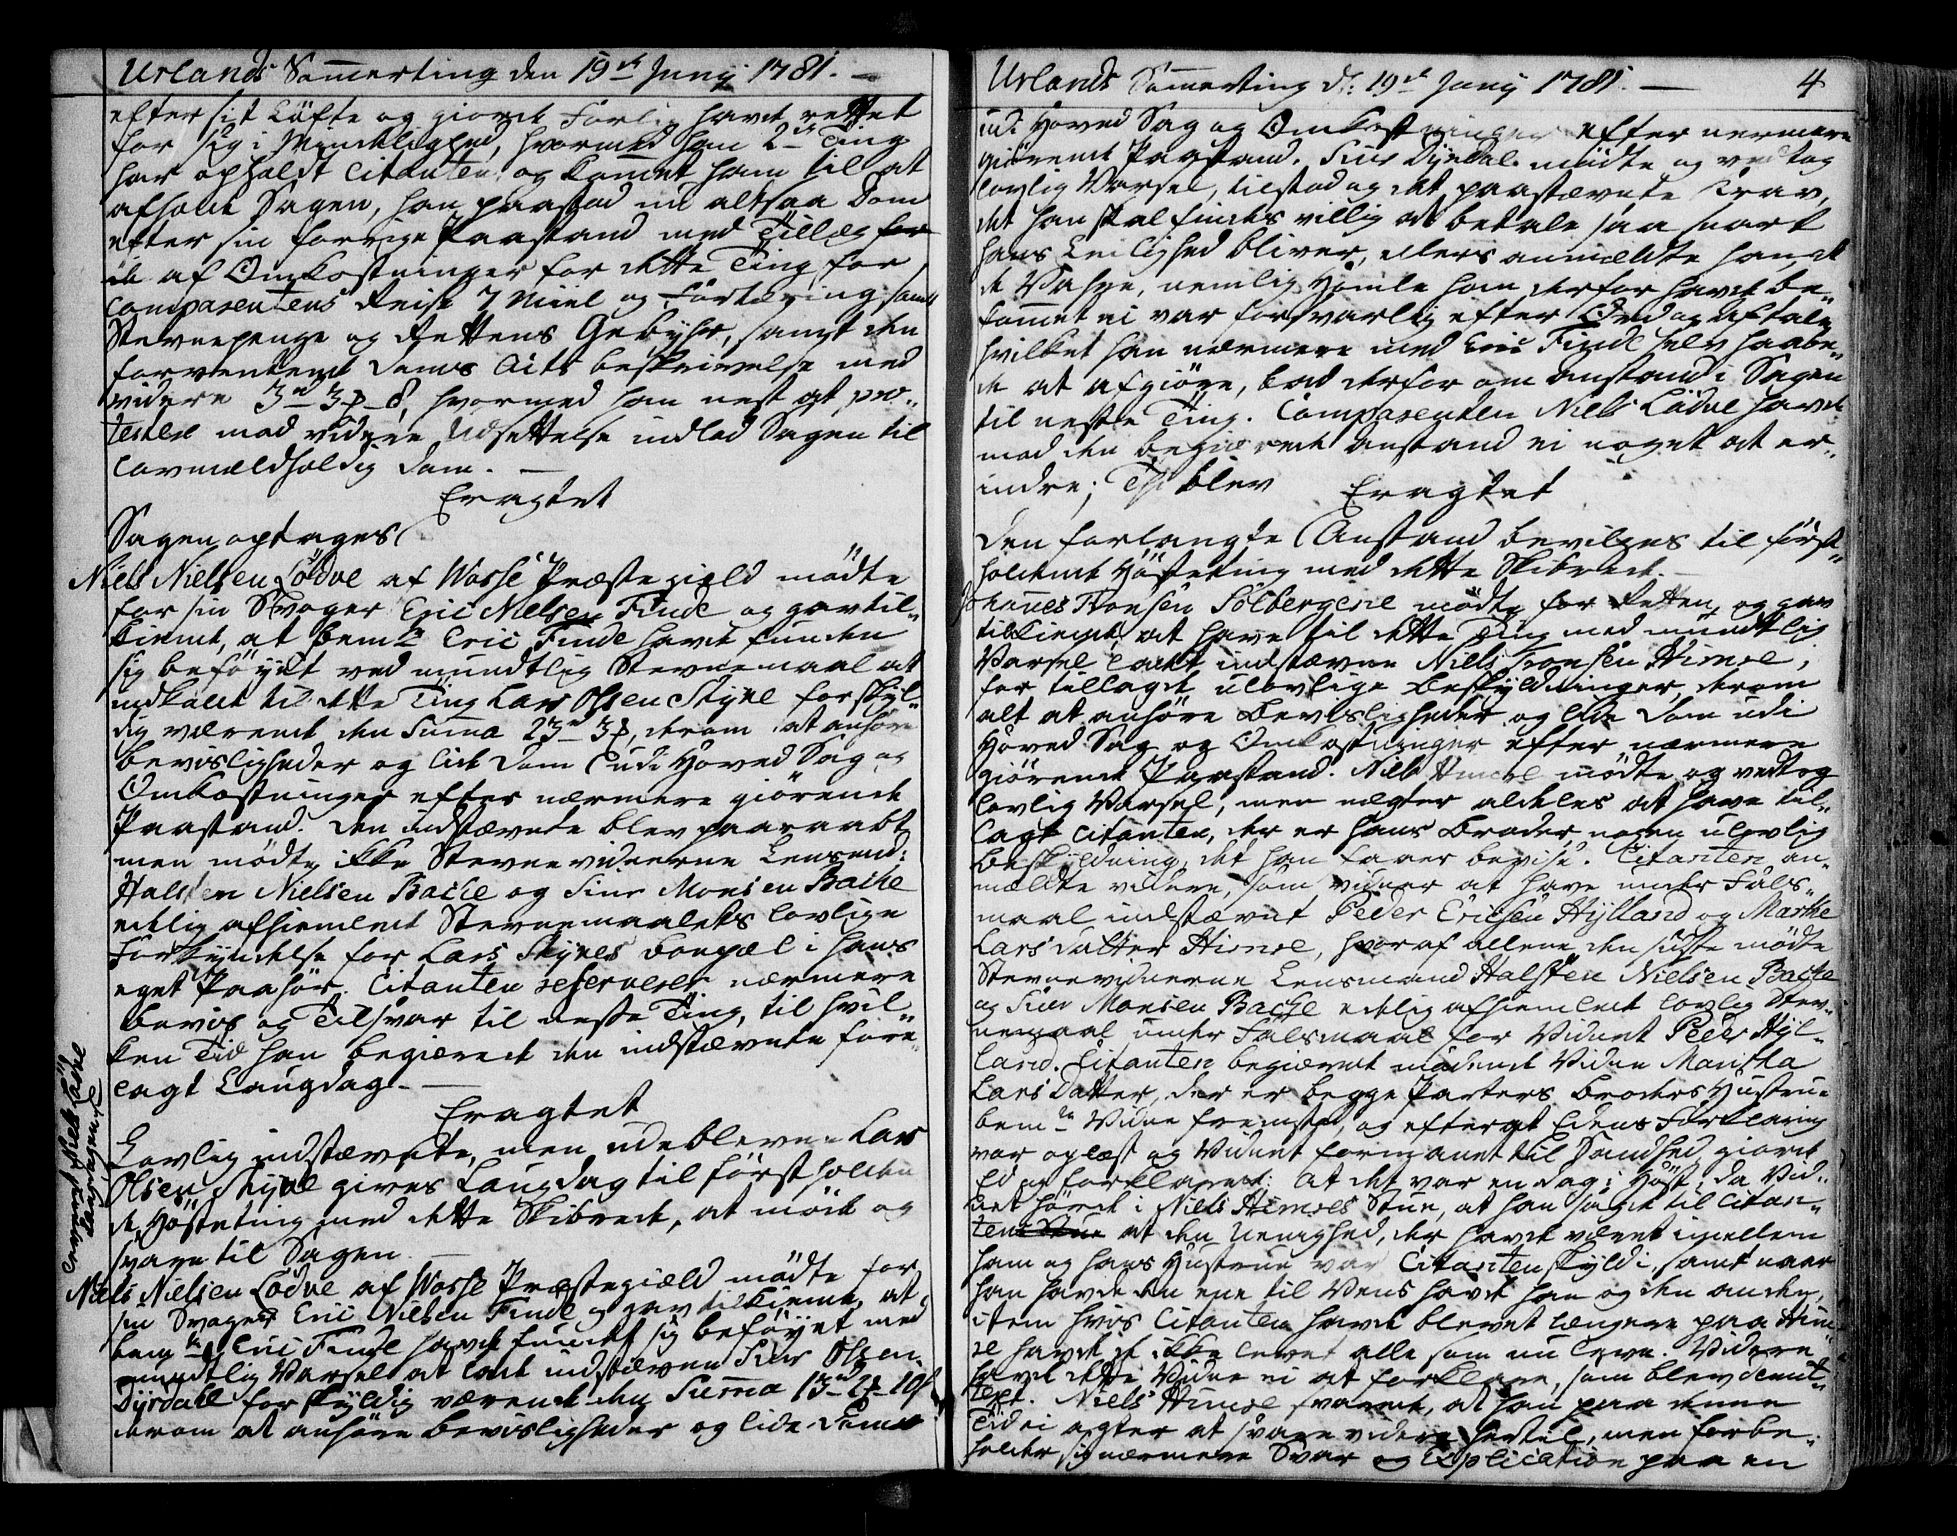 Urlands Sommerting den 19de Junij 1781. —
efter sit Løfte og giorde Forlig havde rettet
for sig i Mindelighed, hvormed han 2de Ting
har opholdt Citanten og kommet ham til at
afholde Sagen, han paastod nu altsaa Dom
efter sin forrige Paastand med Tillæg
af Omkostninger for dette Ting for
Comparentens Reise 7 Miil og Fortæring samt
Stevnepenge og Rettens Gebyhr, samt den
forventende Doms Acts beskrivelse med
videre 3 rd 3 ß 8, hvormed han nest at pro-
testere mod videre Udsettelse indlod Sagen til
Lovmældholdig Dom. —
Eragtet
Sagen optages
Niels Nielsen Lødve af Wosse Præstegield mødte
for sin Svoger Eric Nielsen Finde og gav til-
kiende, at bemte Eric Finde havde funden
sig beføyet ved mundtlig Stevnemaal at
indkalde til dette Ting Lars Olsen Skjerve for skyl-
dig værende den Suma 23 rd 3 ß, derom at anhøre
bevisligheder og lide Dom udi Hoved Sag og
Omkostninger efter nærmere giørende
Paastand. Den indstævnte blev paaraabt
men mødte ikke Stevnevidnerne Lensmd:
Halsten Nielsen Bache og Siur Monsen Bache
edelig afhiemlede Stevnemaalets lovlige
Forkyndelse for Lars Bopæl i hans
eget Paahør. Citanten reserverer nærmere
beviis og Tilsvar til neste Ting, til hvil-
ken Tid han begiærede den indstævnte fore-
lagt Laugdag. —
Eragtet
Lovlig indstævnte, men udeblevne Lars
Olsen gives Laugdag til førstholden-
de Høsteting med dette Skibrede, at møde og
svare til Sagen. —
Niels Nielsen Lødve af Wosse Præstegield mødte for
sin Svoger Eric Nielsen Finde og gav tilkiende, at
bemte Eric Finde havde fundet sig beføyet med
mundtlig Varsel at lade indstævne Siur Olsen
Dyrdahl for skyldig værende den Suma 13 rd 2 10 ß
derom at anhøre bevisligheder og lide Dom
Niels Lødve
Laugdagen
Urlands Sommerting d: 19de Junij 1781. — 4
udi Hoved Sag og Omkostninger efter nermere
giørende Paastand. Siur Dyrdal mødte og vedtog
lovlig Varsel, tilstod og det paastævnte Krav,
det han skal findes villig at betale saa snart
hans Leilighed bliver, ellers anmældte han, at
de Vahre, nemlig Homle han derfor havde be-
kommet ei var forsvarlig efter Ord og Aftale
hvilket han nærmere med Eric Finde selv haabe-
de at afgiøre, bad derfor om anstand i Sagen
til neste Ting. Comparenten Niels Lødve havde
mod den begiærede Anstand ei noget at er-
indre; Thi blev Eragtet
Den forlangte Anstand bevilges til først-
holdende Høsteting med dette Skibrede. —
Johannes Ivonsen Solbergene mødte for Retten, og gav
tilkiende, at have til dette Ting med mundtlig
Varsel ladet indstævne Niels Ivonsen Himre,
for tillagde ulovlige beskyldninger, derom
alt at anhøre bevisligheder og lide Dom udi
Hoved Sag og Omkostninger efter nærmere
giørende Paastand. Niels Himre mødte og vedtog
lovlig Varsel, men nægter aldeles at have til-
lagt Citanten, der er hans Broder, nogen ulovlig
beskyldning, det han faaer bevise. Citanten an-
mældte videre, som vidner at have under Fals-
maal indstævnt Peder Ericsen Hylland og Marthe
Lars Datter Himre, hvoraf allene den sidste mødte
Stevnevidnerne Lensmand Halsten Nielsen Bache
og Siur Monsen Bache edelig afhiemlede lovlig Stev-
nemaal under Falsmaal for Vidnet Peder Hyl-
land. Citanten begiærede mødende Vidne Maritha
Lars Datter, der er begge Parters Broders Hustrue
bemte Vidne fremstod, og efterat Edens Forklaring
var oplæst og Vidnet formanet til Sandhed, giorde
Ed og forklarede: At det var en dag i Høst, da Vid-
net hørde i Niels Himres Stue, at han sagde til Citan-
ten at den Uenighed, der havde været imellem
ham og hans Hustrue var Citanten skyld i, samt naar
han havde den ene til Vens havde han og den anden,
item hvis Citanten havde blevet længere paa Him-
re havde de ikke levet alle som nu leve. Videre
havde dette Vidne ei at forklare, som blev demit-
teret. Niels Himre svarede, at han paa denne
Tid ei agter at svare videre hertil, men forbe-
holder sig nærmere Svar og Explication paa en